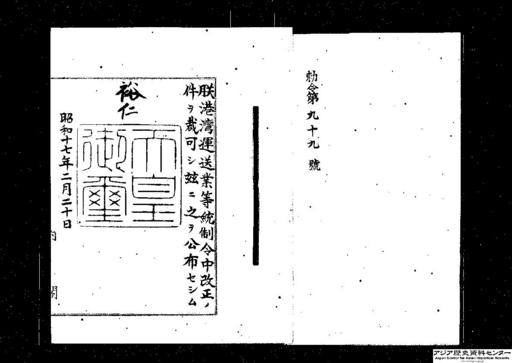 勅令第九十九號
朕港灣運送業等統制令中改正ノ
件ヲ裁可シ玆ニ之ヲ公布セシム
裕仁
天皇
御璽
昭和十七年二月二十日
内閣
アジア歴史資料センター
Japan Center for Asian Historical Records